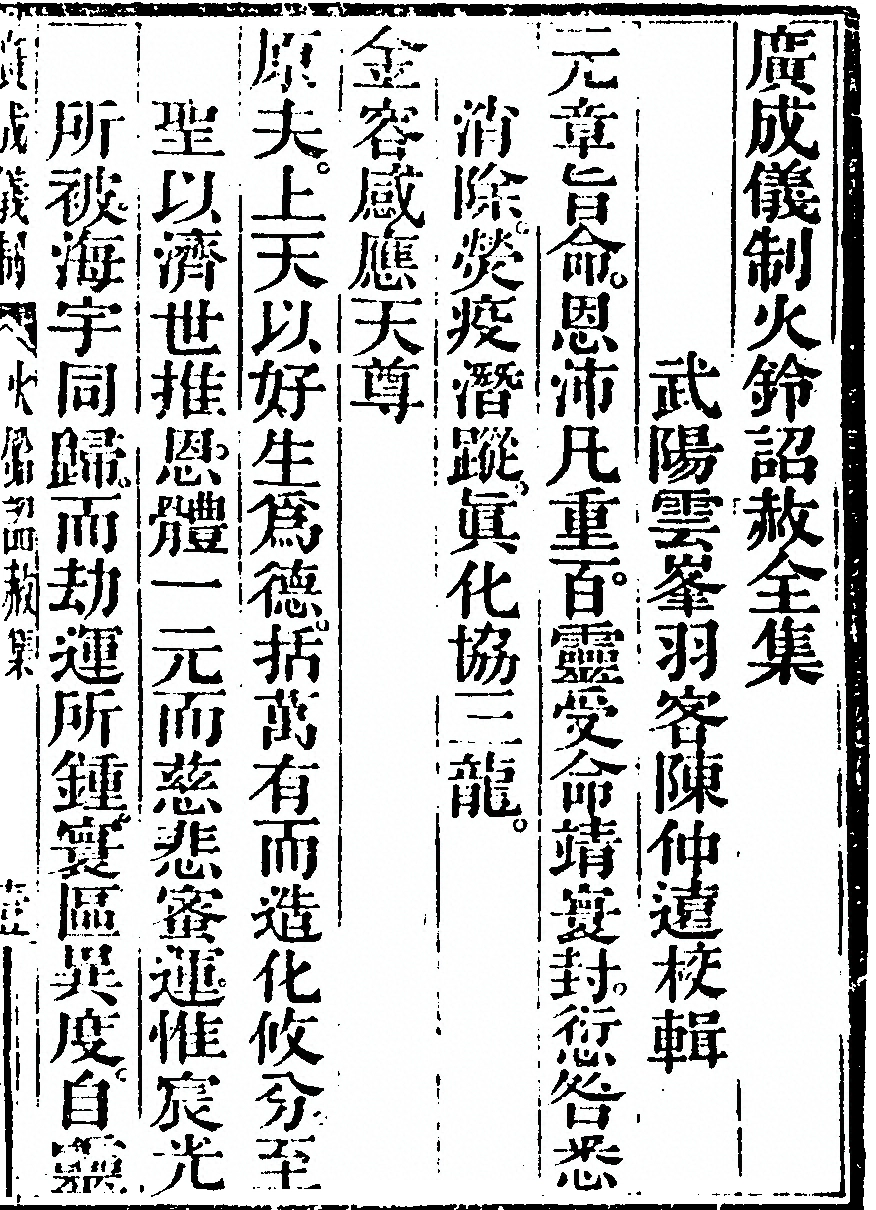 廣成儀制火鈴詔赦全集
武陽雲峯羽客陳仲遠校輯
元章旨命。恩沛凡重。百靈受命靖寰封。愆咎悉
消除。熒疫潛蹤。眞化協三龍。
金容感應天尊
原夫。上天以好生爲德。括萬有而造化攸分。至
聖以濟世推恩。體一元而慈悲蜜運。惟宸光
所被。海宇同歸。而劫運所鍾。寰區異度。自靈
廣成儀制 火鈴詔赦集 壹